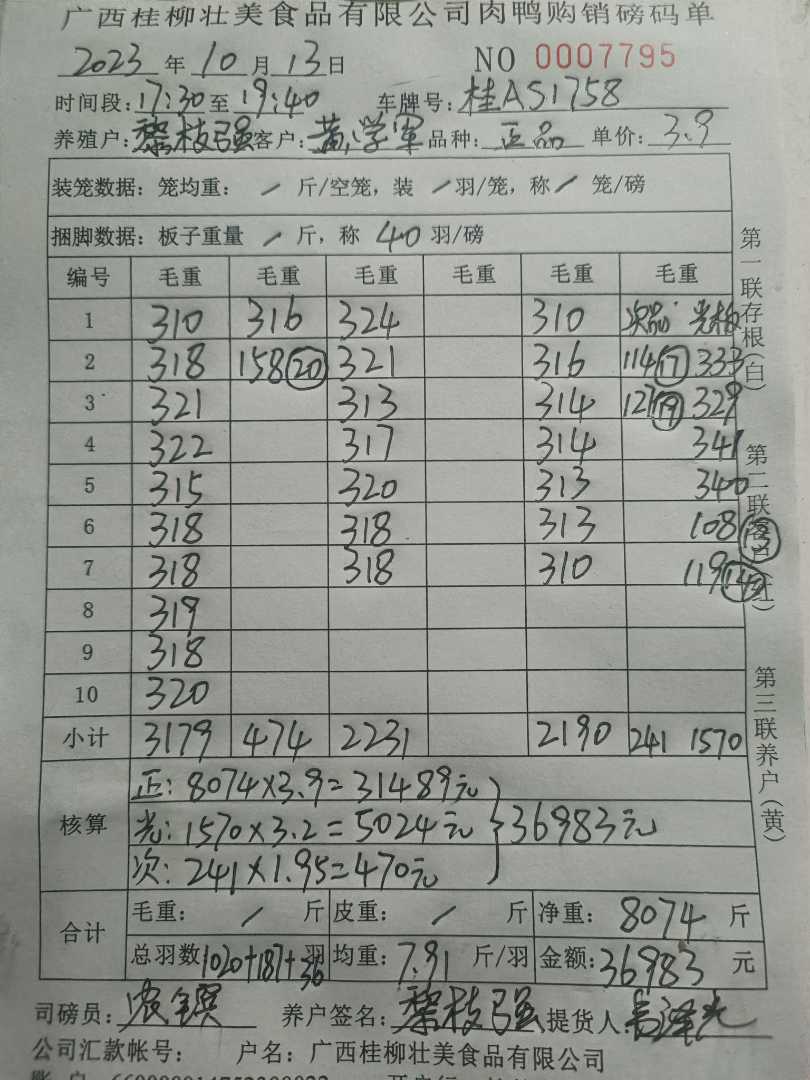 广西桂柳壮美食品有限公司肉鸭购销磅码单
2023年10月13日 NO 0007795
时间段:17:30至19:40 车牌号:桂AS1758
养殖户:黎枝强 客户:黄学军 品种:正品 单价:3.9
装笼数据:笼均重: / 斤/空笼,装 / 羽/笼,称 / 笼/磅
捆脚数据:板子重量 / 斤,称 40 羽/磅
编号 毛重 毛重 毛重 毛重 毛重 毛重
1 310 316 324 310 次品 光板
2 318 158⑳ 321 316 114⑰ 333
3 321 313 314 127⑲ 329
4 322 317 314 341
5 315 320 313 340
6 318 318 313 108⑬
7 318 318 310 119⑭
8 319
9 318
10 320
小计 3179 474 2231 2190 241 1570
核算
正:8074×3.9=31489元
光:1570×3.2=5024元 36983元
次:241×1.95=470元
合计
毛重: / 斤 皮重: / 斤 净重: 8074 斤
总羽数1020+187+36羽 均重:7.91 斤/羽 金额:36983 元
司磅员: 养户签名:黎枝强 提货人:
公司汇款帐号: 户名:广西桂柳壮美食品有限公司
第一联存根(白)
第二联客户(红)
第三联养户(黄)